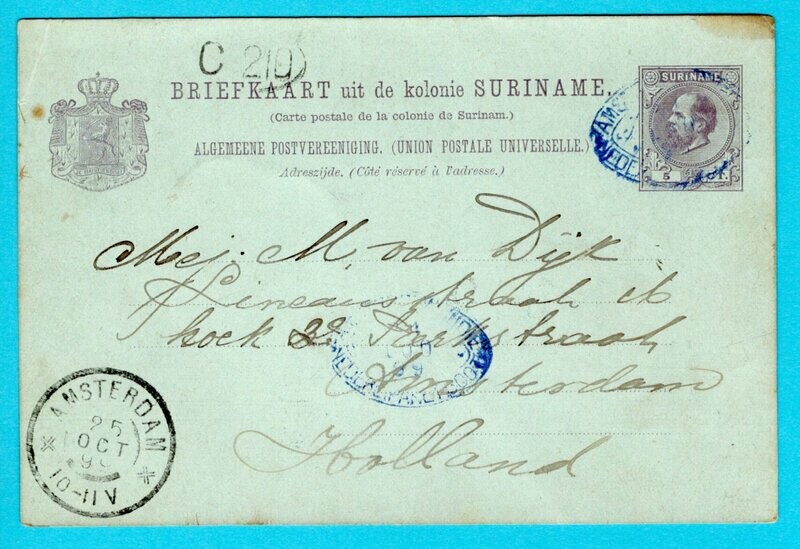 C 210
BRIEFKAART uit de kolonie SURINAME.
(Carte postale de la colonie de Surinam.)
ALGEMEENE POSTVEREENIGING. (UNION POSTALE UNIVERSELLE.)
Adreszijde. (Côté réservé à l'adresse.)
SURINAME
5
Mej. M. van Dijk
Lineausstraat
hoek 2e Parkstraat
Amsterdam
Holland
AMSTERDAM
25
OCT
10-11V